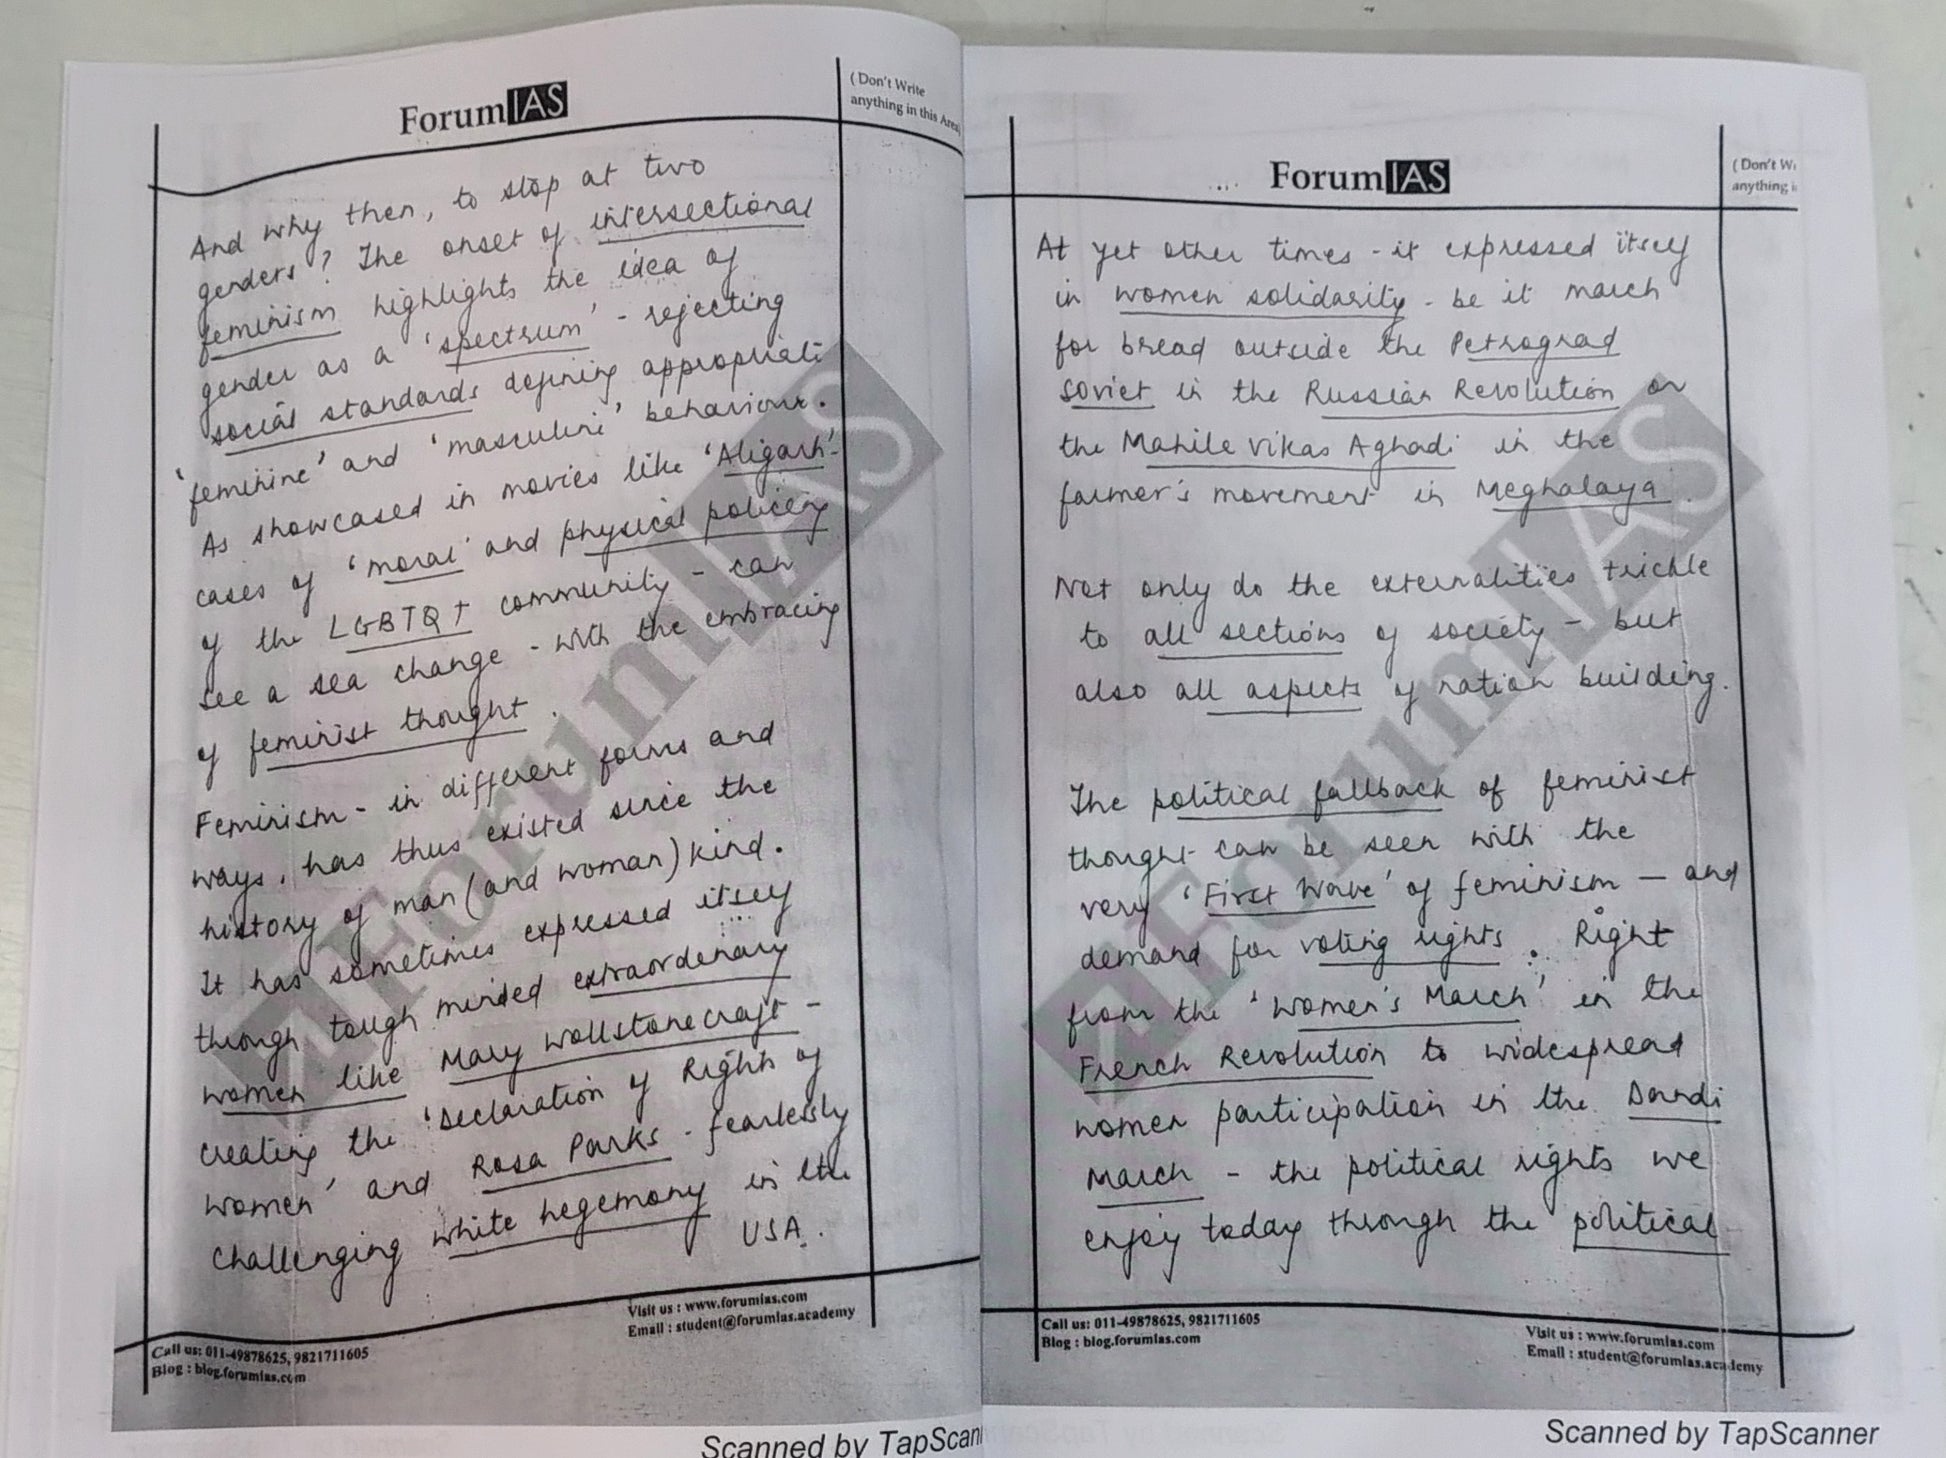 Forum IAS
( Don't Write
anything in this Area
And why then, to stop at two
genders? The onset of intersectional
feminism highlights the idea of
gender as a 'spectrum' - rejecting
social standards defining appropriate
'feminine' and 'masculine' behaviour.
As showcased in movies like 'Aligarh'-
cases of 'moral' and physical policing
of the LGBTQ+ community - can
see a sea change - with the embracing
of feminist thought.
Feminism - in different forms and
ways, has thus existed since the
history of man (and woman) kind.
It has sometimes expressed itself
through tough minded extraordenary
women like Mary Wollstonecraft -
creating the 'Declaration of Rights of
Women' and Rosa Parks - fearlessly
challenging white hegemony in the
USA.
Visit us : www.forumias.com
Email : student@forumias.academy
Call us: 011-49878625, 9821711605
Blog : blog.forumias.com
Scanned by TapScan
Forum IAS
( Don't Wr
anything i
At yet other times - it expressed itself
in women solidarity - be it march
for bread outside the Petrograd
Soviet in the Russian Revolution or
the Mahile Vikas Aghadi in the
farmer's movement in Meghalaya.
Not only do the externalities trickle
to all sections of society - but
also all aspects of nation building.
The political fallback of feminist
thought can be seen with the
very 'First Wave' of feminism - and
demand for voting rights. Right
from the 'Women's March' in the
French Revolution to widespread
women participation in the Dandi
March - the political rights we
enjoy today through the political
Call us: 011-49878625, 9821711605
Blog : blog.forumias.com
Visit us : www.forumias.com
Email : student@forumias.academy
Scanned by TapScanner